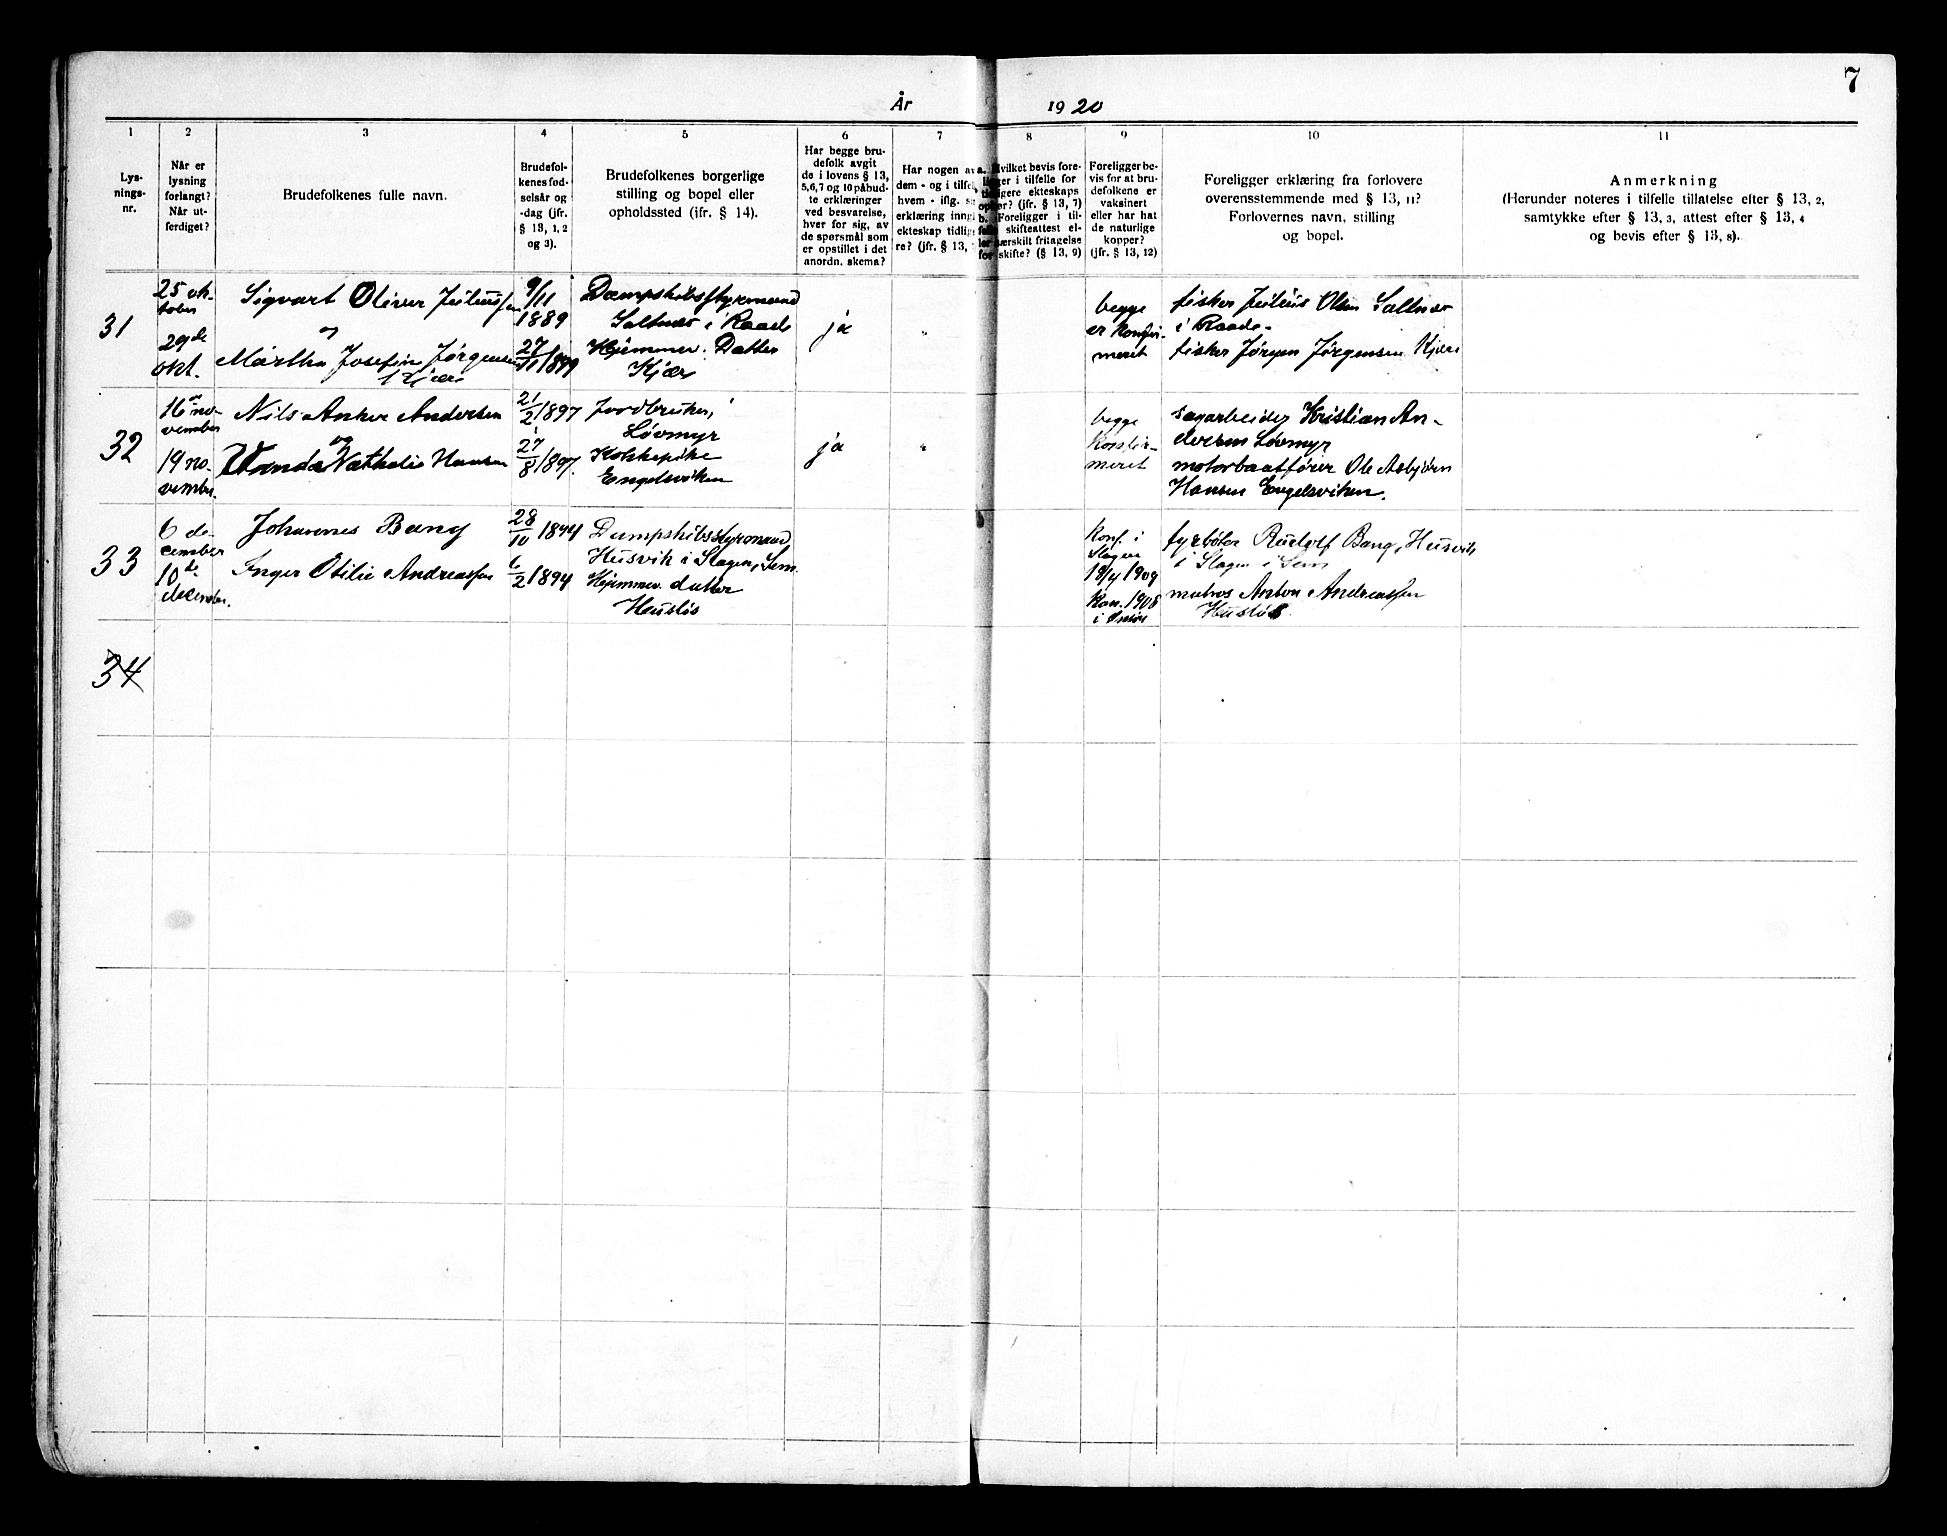 7
År 1920
1 2 3 4 5 6 7 8 9 10 11
Lys-
nings-
nr.
Når er
lysning
forlangt?
Når ut-
ferdiget?
Brudefolkenes fulle navn.
Brudefol-
kenes fød-
selsår og
-dag (jfr.
§ 13, 1, 2
og 3).
Brudefolkenes borgerlige
stilling og bopel eller
opholdssted (ifr. § 14).
Har begge bru-
defolk avgit
de i lovens § 13,
5,6,7 og 10 påbud-
te erklæringer
ved besvarelse,
hver for sig, av
de spørsmål som
er opstillet i det
anordn. skema?
Har nogen av
dem - og i tilfel
hvem - iflg. s
erklæring inng
ekteskap tidlig
re? (jfr. § 13,
a. Hvilket bevis fore-
ligger i tilfelle for
tidligere ekteskaps
ophør? (jfr. § 13, 7)
b. Foreligger i til-
felle skifteattest el-
ler særskilt fritagelse
for skifte? (§ 13, 9)
Foreligger be-
vis for at bru-
defolkene er
vaksinert
eller har hat
de naturlige
kopper?
(jfr. § 13, 12)
Foreligger erklæring fra forlovere
overensstemmende med § 13, 11?
Forlovernes navn, stilling
og bopel.
Anmerkning
(Herunder noteres i tilfelle tillatelse efter § 13, 2,
samtykke efter § 13, 3, attest efter § 13, 4
og bevis efter § 13, 8).
31
25 ok-
tober
29de
okt.
Sigvart Oliver Juliussen
og
Martha Josefin Jørgensen
Kjær
9/11
1889
27/11 1899
Dampskibsstyrmand
Saltnes i Raade
Hjemmev. Datter
Kjær
ja
"
begge
er konfir-
meret
fisker Julius Olsen Saltnes
i Raade.
fisker Jørgen Jørgensen Kjær
32
16n no-
vember
19 no-
vembr.
Nils Anker Andersen
og
Wanda Nathalie Hansen
21/2 1897
27/8 1897.
Jordbruker,
Løvmyr
Kokkepike
Engelsviken
ja
"
begge
konfir-
meret
sagarbeider Kristian An-
dersen Løvmyr
motorbaatfører Ole Asbjørn
Hansen Engelsviken.
33
6 de-
cember
10de
december.
Johannes Bang
Inger Otilie Andreassen
28/10 1894
6/2 1894
Dampskibsstyrmand
Husvik i Slagen, Sem.
Hjemmev. datter
Husløs
Konf. i
Slagen
19/4 1909
Kon. 1908
i Onsø
fyrbøter Rudolf Bang, Husvik
i Slagen i Sem
matros Anton Andreassen
Husløs
34